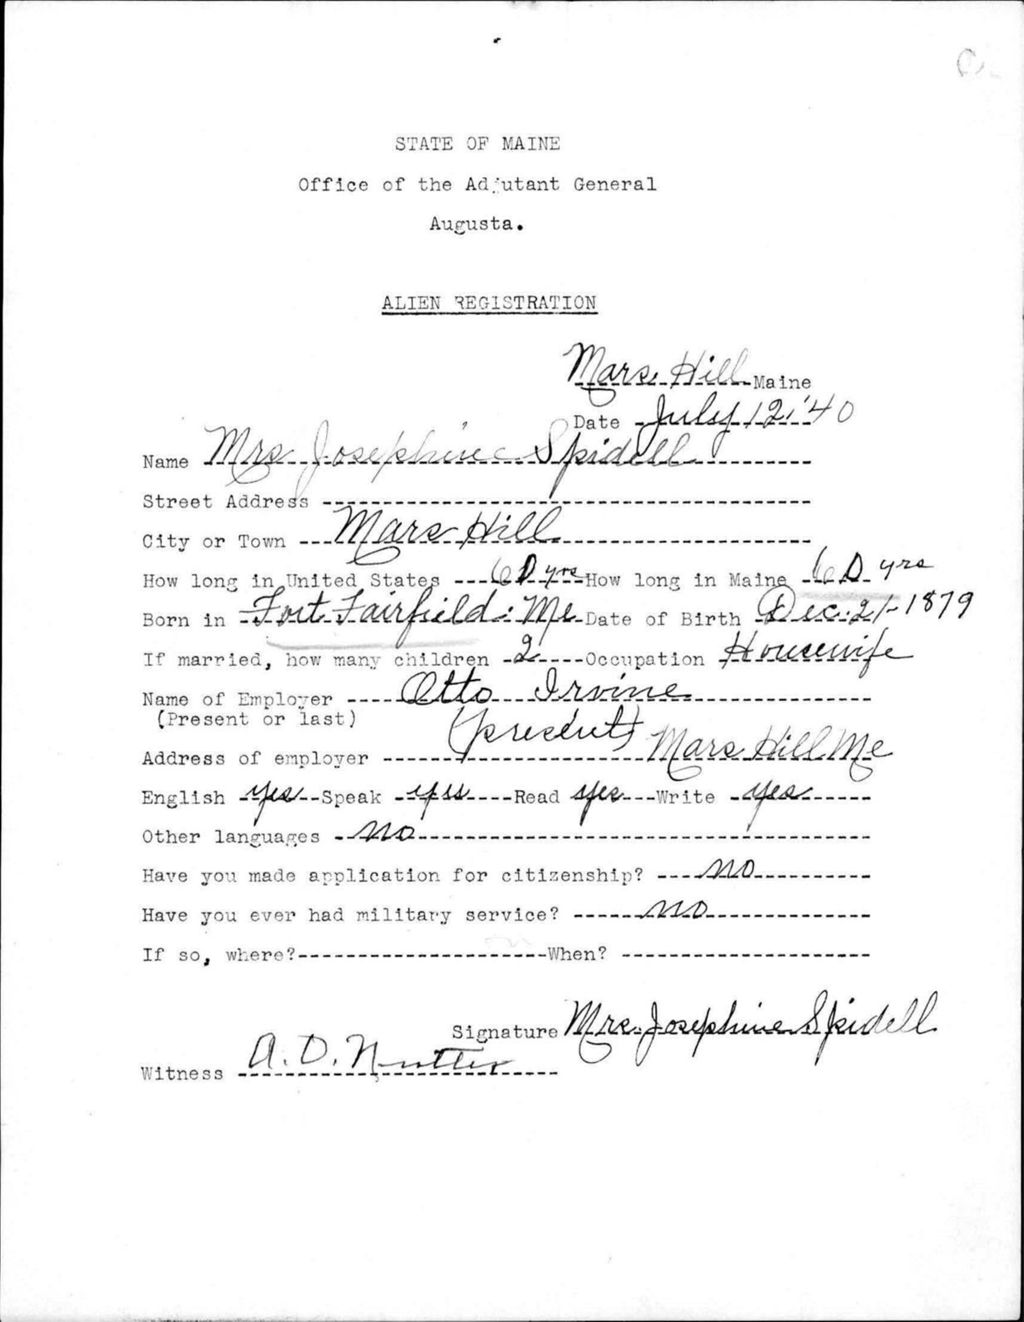 STATE OF MAINE
Office of the Adjutant General
Augusta.
ALIEN REGISTRATION
Mars Hill Maine
Date July 12, '40
Name Mrs Josephine Spidell
Street Address
City or Town Mars Hill
How long in United States 60 yrs How long in Maine 60 yrs
Born in Fort Fairfield, Me Date of Birth Dec. 21-1879
If married, how many children 2 Occupation Housewife
Name of Employer Otto Irvine
(Present or last) (present)
Address of employer Mars Hill Me
English yes Speak yes Read yes Write yes
Other languages no
Have you made application for citizenship? no
Have you ever had military service? no
If so, where? When?
Signature Mrs. Josephine Spidell
Witness A. D. Nutter